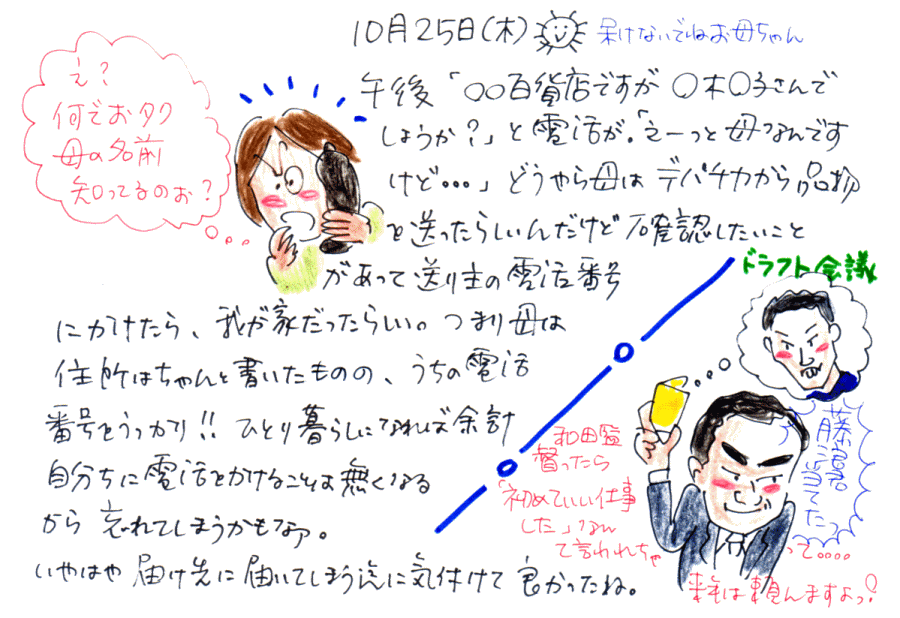 10月25日(木)
呆けないでねお母ちゃん
え?
何でおタク
母の名前
知ってるのぉ?
午後「〇〇百貨店ですが 〇木〇子さんで
しょうか?」と電話が。「えーっと母なんです
けど…」どうやら母はデパチカから品物
を送ったらしいんだけど確認したいこと
があって送り主の電話番号
にかけたら、我が家だったらしい。つまり母は
住所はちゃんと書いたものの、うちの電話
番号をうっかり!! ひとり暮らしになれば余計
自分ちに電話をかけることは無くなる
から 忘れてしまうかもなァ。
いやはや 届け先に届いてしまう前に気付けて良かったね。
ドラフト会議
藤
君
当てたっ
って....
和田監
督ったら
「初めていい仕事
した」なん
て言われちゃ
来年は頼んますよっ!